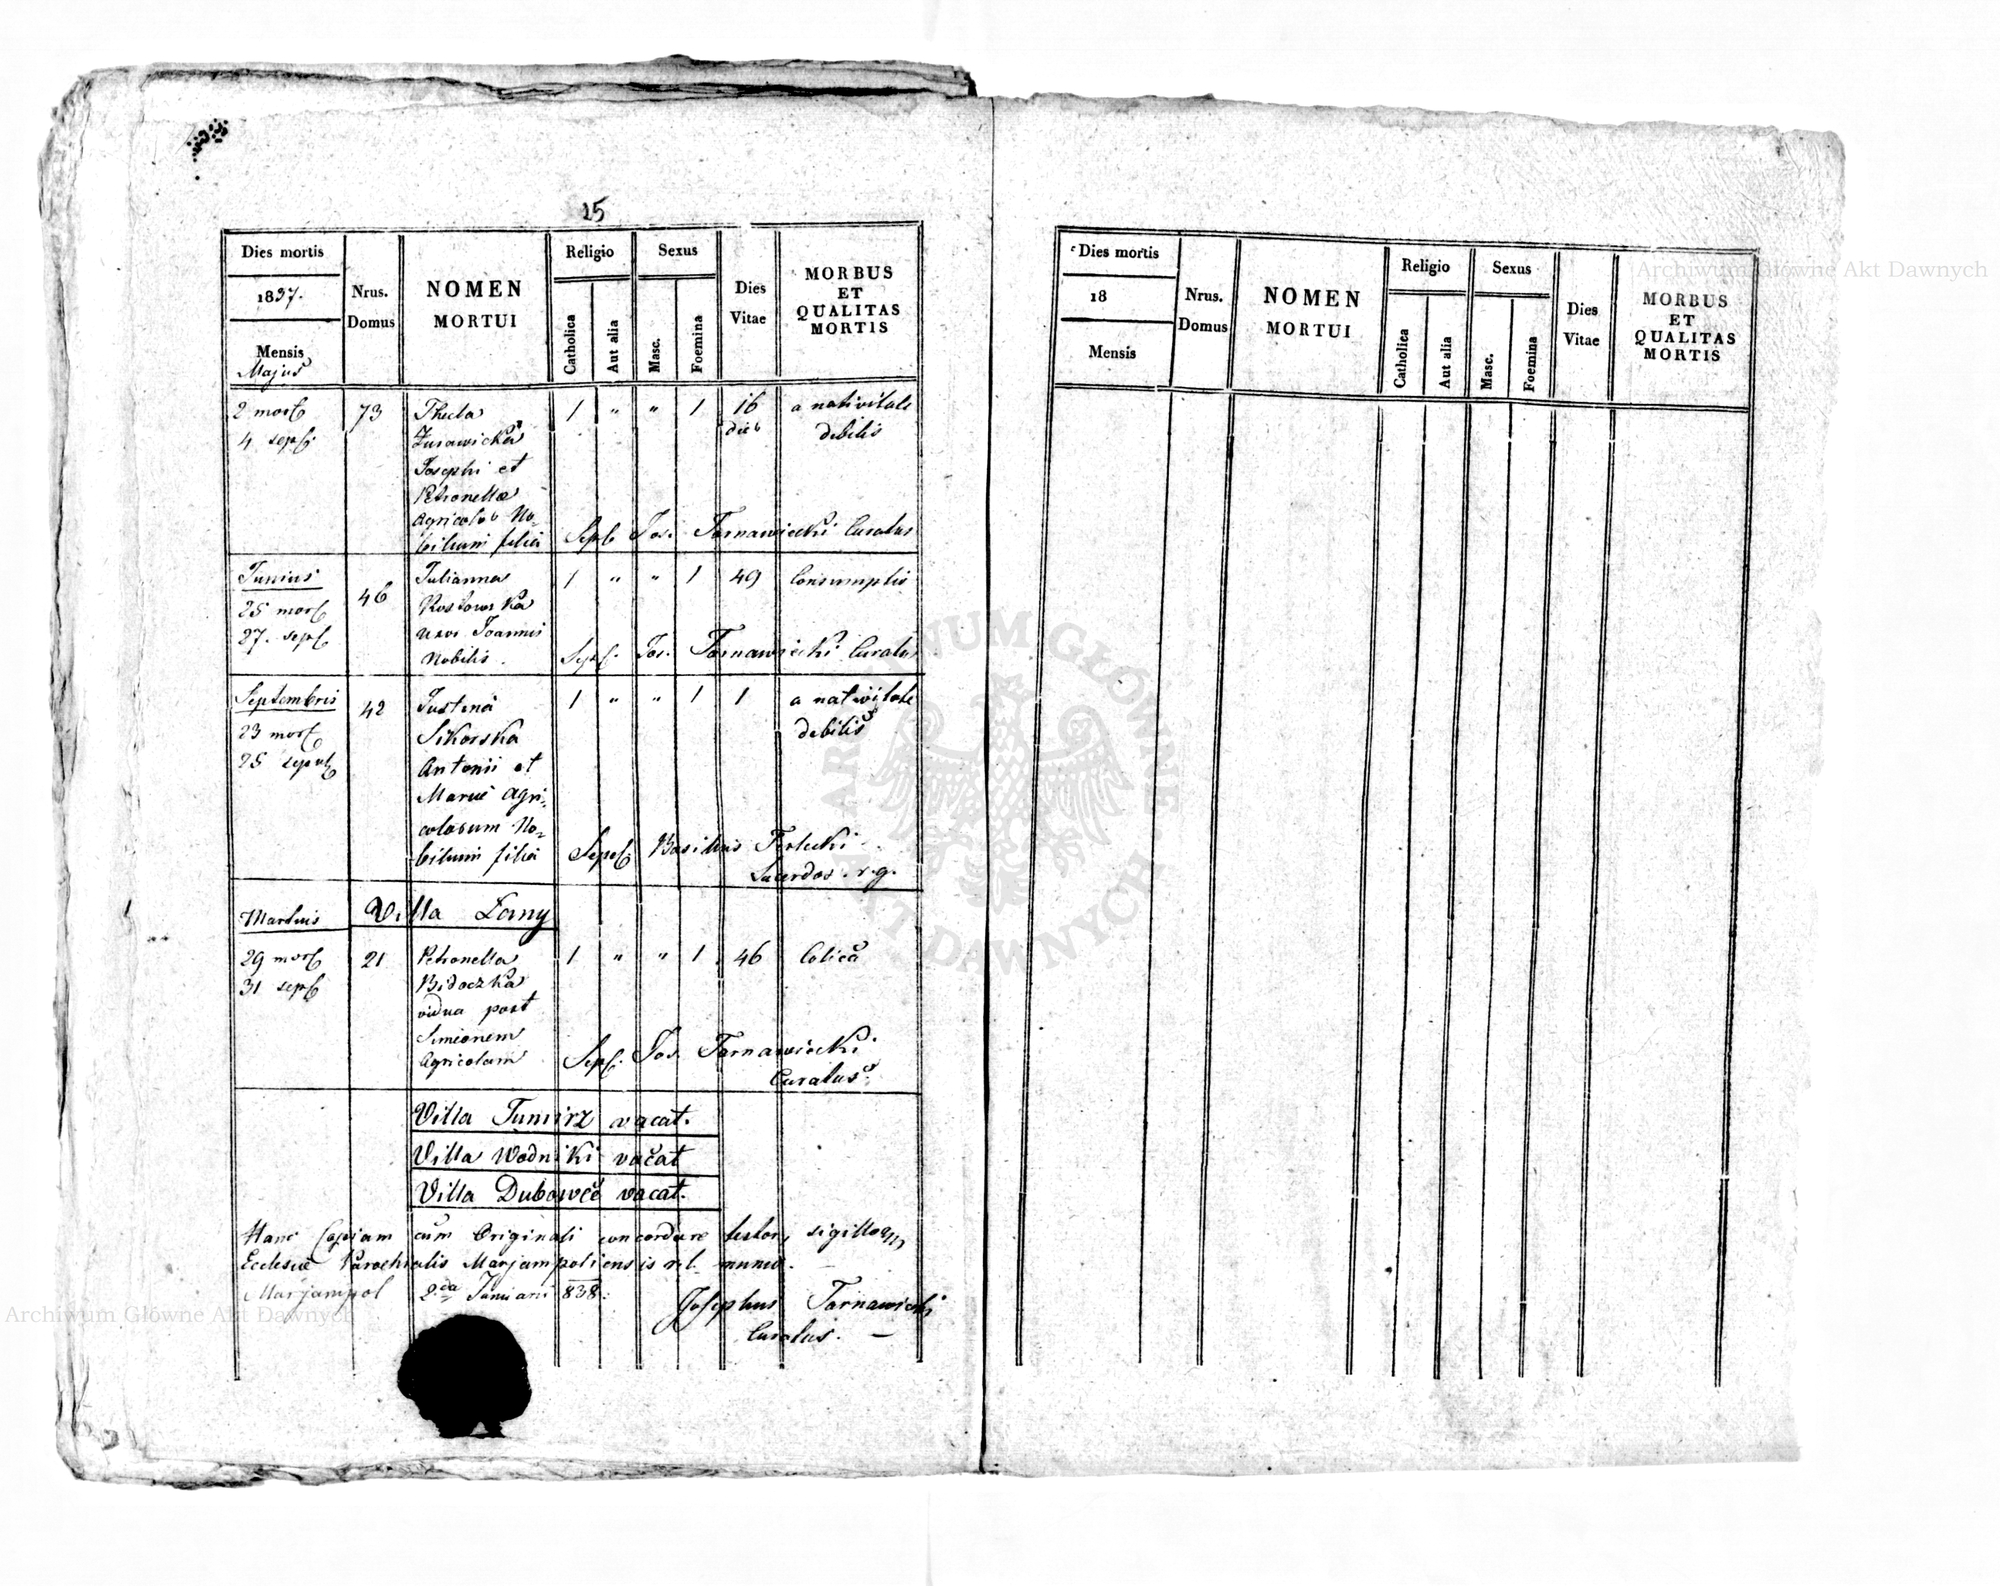 25
Dies mortis
1837.
Mensis
Majus
Nrus.
Domus
NOMEN
MORTUI
Religio
Catholica
Aut alia
Sexus
Masc.
Foemina
Dies
Vitae
MORBUS
ET
QUALITAS
MORTIS
2 mort 73 Thecla 1 " " 1 16 a nativitate
4 sep. Zurawicka dieb debilis
Josephi et
Petronellae
Agricolar No-
bilium filia Sepel Jos. Tarnawiecki Curatus
Junius Julianna 1 " " 1 49 Consumptio
25 mort 46 Rostowska
27. sepel uxor Joannis
Nobilis. Sepel. Jos. Tarnawiecki Curatus
Septembris 42 Justina 1 " " 1 1 a nativitate
23 mort Sikorska debilis
25 sepult Antonii et
Mariae Agri-
colarum No-
bilium filia Sepel. Basilius Terlecki
Sacerdos r. g.
Martius Villa Lany
29 mort 21 Petronella 1 " " 1 46 Colica
31 sepel Bidoczka
vidua post
Simeonem
Agricolam Sepel. Jos. Tarnawiecki
Curatus.
Villa Tumirz vacat.
Villa Wodniki vacat
Villa Dubowce vacat.
Hanc Copiam cum Originali concordare testor, sigilloq
Ecclesiae Parochialis Marjampoliensis r. l. munio.
Marjampol 2da Januarii 838. Josephus Tarnawiecki
Curatus. —
Dies mortis
18
Mensis
Nrus.
Domus
NOMEN
MORTUI
Religio
Catholica
Aut alia
Sexus
Masc.
Foemina
Dies
Vitae
MORBUS
ET
QUALITAS
MORTIS
Archiwum Główne Akt Dawnych
ARCHIWUM GŁÓWNE AKT DAWNYCH
Archiwum Główne Akt Dawnych